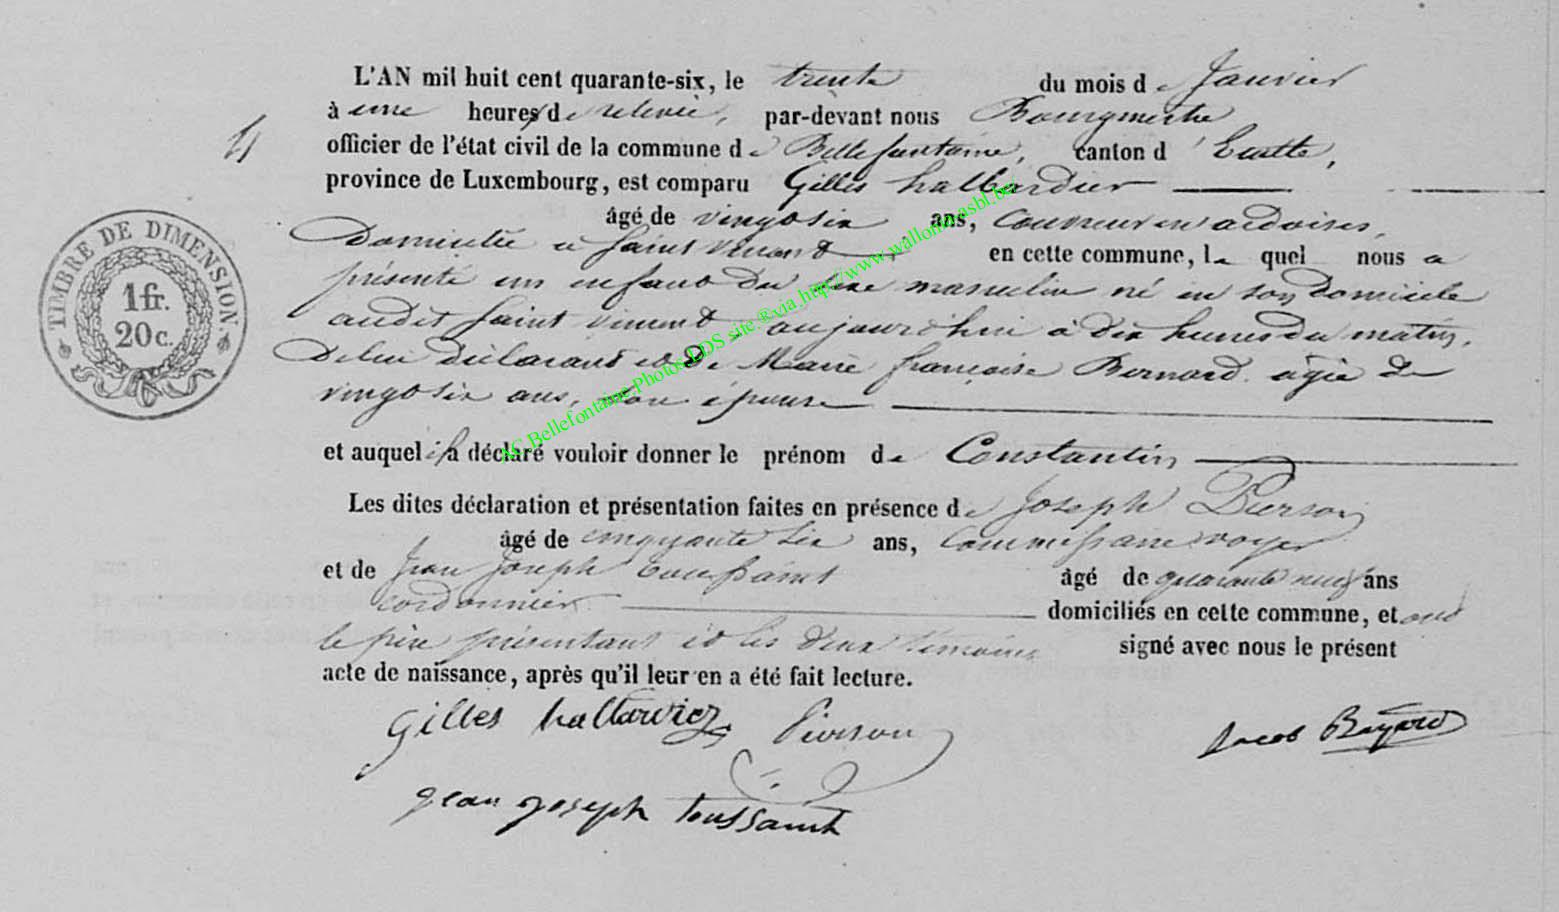 L'AN mil huit cent quarante-six, le trente du mois de Janvier
à une heures de relevée, par-devant nous Bourgmestre
4
officier de l'état civil de la commune de Bellefontaine, canton d'Etalle,
province de Luxembourg, est comparu Gilles halbardier
âgé de vingtsix ans, couvreur en ardoises,
Domicilié a Saint Vincent, en cette commune, le quel nous a
présenté un enfant du sexe masculin né en son domicile
audit Saint Vincent aujourd'hui à dix heures du matin,
De lui déclarant et de Marie françoise Bernard agée de
vingtsix ans, son épouse
et auquel il a déclaré vouloir donner le prénom de Constantin
Les dites déclaration et présentation faites en présence de Joseph Pierson
âgé de cinquante six ans, Commissaire voyer
et de Jean Joseph toussaint âgé de quarante neuf ans
cordonnier domiciliés en cette commune, et ont
le père présentant et les deux témoins signé avec nous le présent
acte de naissance, après qu'il leur en a été fait lecture.
gilles Pierson Jacob Bayard
jean joseph toussaint
TIMBRE DE DIMENSION.
1 fr.
20 c.
AC.Bellefontaine.Photos LDS site.®via.http://www.wallonia.asbl.be/